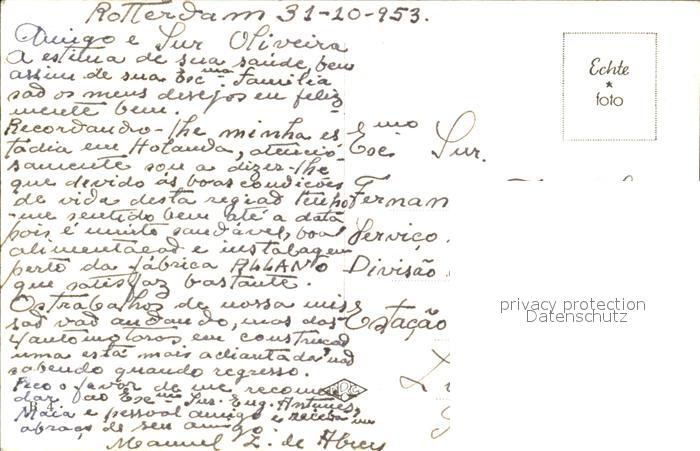 Rotterdam 31-10-953.
Amigo e Snr Oliveira
A estima de sua saúde, bem
assim de sua Exc.ma Familia
são os meus desejos eu feliz-
mente bem.
Recordando-lhe minha es
tadia em Holanda, atencio-
samente sou a dizer-lhe
que devido ás boas condições
de vida desta região tenho
-me sentido bem até a data
pois é muito saudável, boa
alimentação e instalagem
perto da fábrica ALLAN o
que satisfaz bastante.
Os trabalhos de nossa mis
são vão andando, mas das
4 automotoras em construção
uma está mais adiantada não
sabendo quando regresso.
Peço o favor de me recomen
dar ao Exc.mo Snr. Eng. Antunes,
Maia e pessoal amigo e receba um
abraço de seu amigo
Manuel L. de Abreu
Echte
foto
Exc.mo Snr.
Fernan
Serviço
Divisão
Estação
privacy protection
Datenschutz